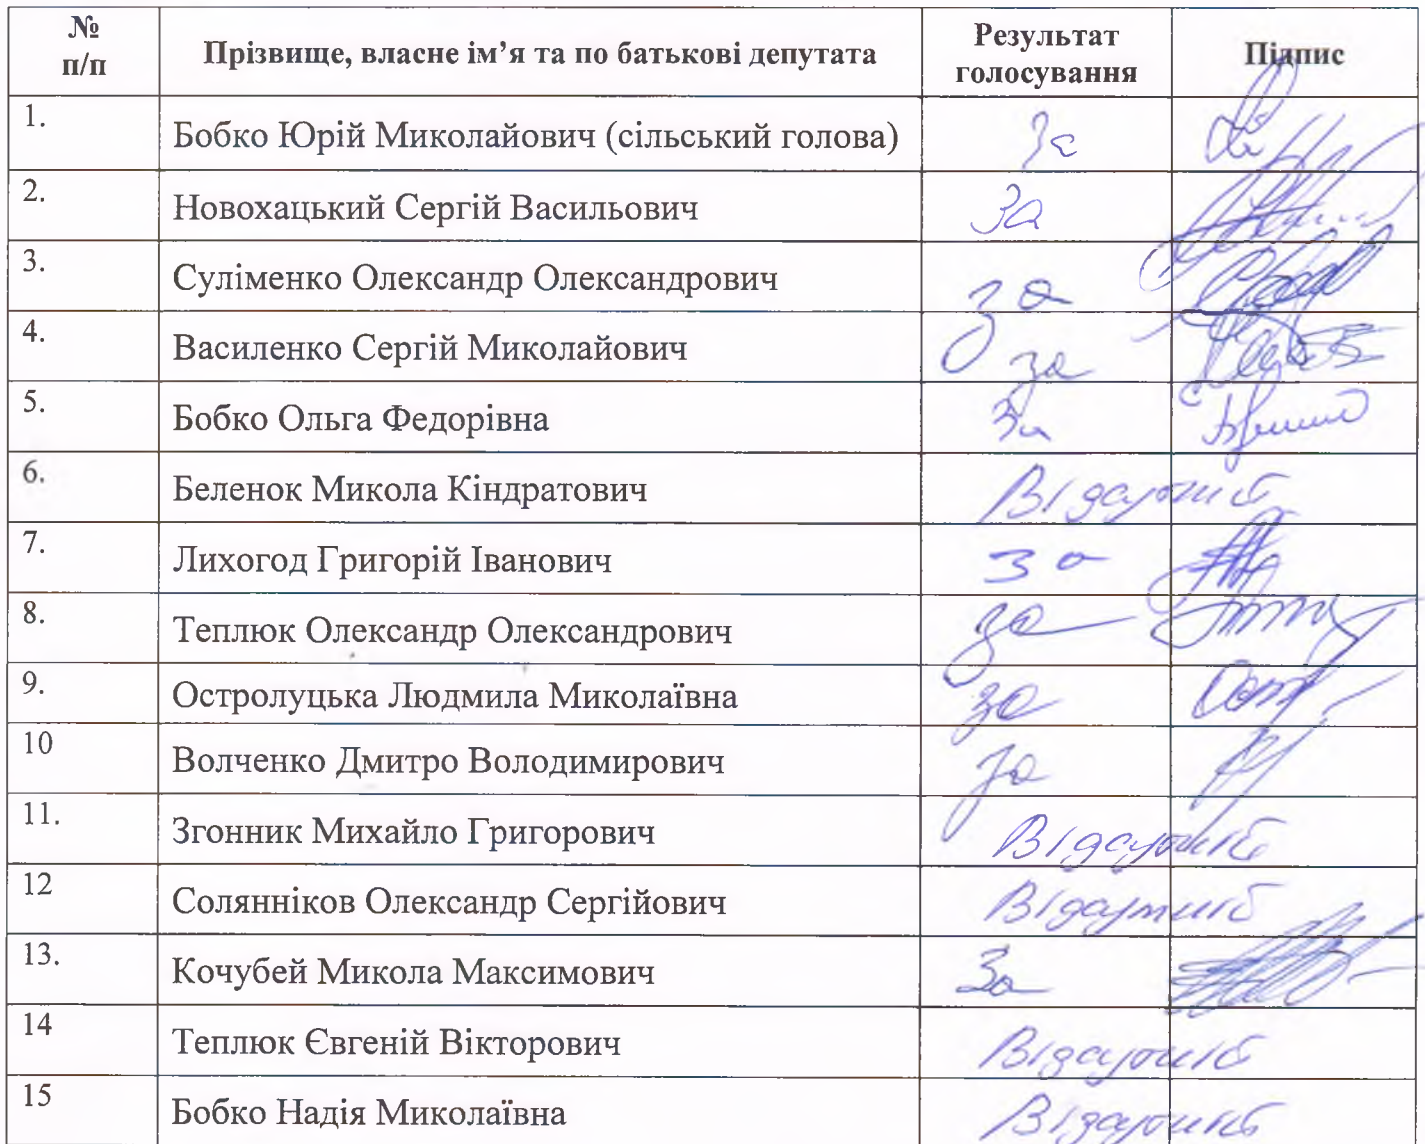 № п/п Прізвище, власне ім’я та по батькові депутата Результат голосування Підпис
1. Бобко Юрій Миколайович (сільський голова) За
2. Новохацький Сергій Васильович За
3. Суліменко Олександр Олександрович за
4. Василенко Сергій Миколайович за
5. Бобко Ольга Федорівна За
6. Беленок Микола Кіндратович Відсутній
7. Лихогод Григорій Іванович за
8. Теплюк Олександр Олександрович за
9. Остролуцька Людмила Миколаївна за
10 Волченко Дмитро Володимирович за
11. Згонник Михайло Григорович Відсутній
12 Солянніков Олександр Сергійович Відсутній
13. Кочубей Микола Максимович За
14 Теплюк Євгеній Вікторович Відсутній
15 Бобко Надія Миколаївна Відсутній